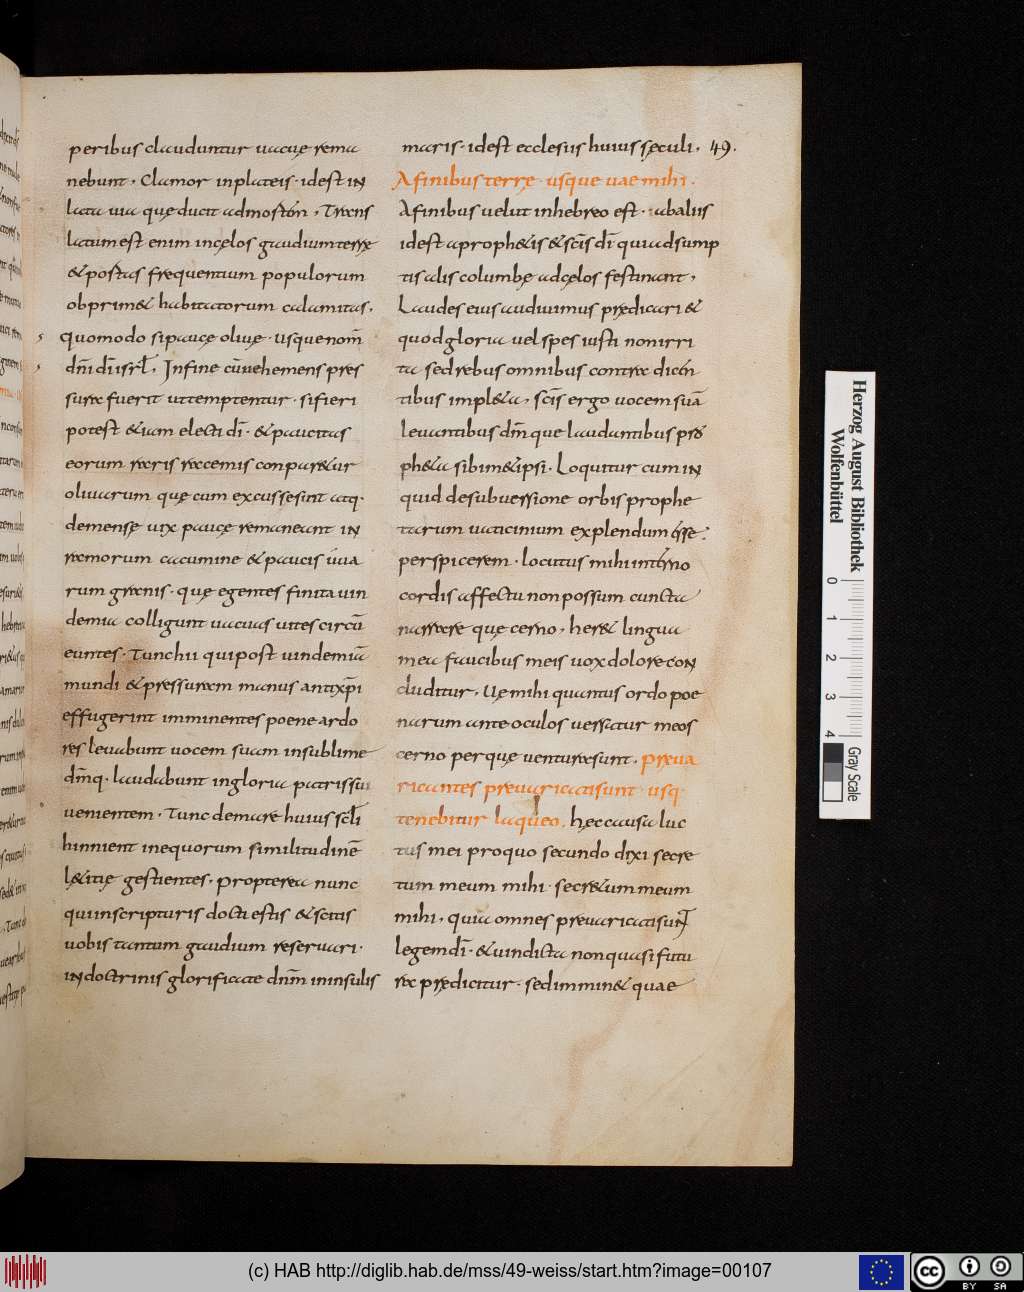 peribus clauduntur uacuę rema
nebunt. Clamor inplateis. idest in
lata uia quę ducit admortem. Trans
latum est enim incęlos gaudium terrę
& postas frequentium populorum
obprim& habitatorum calamitas.
Quomodo si paucę oliuę. usque nom̄
dn̄i dī isrł. Infine cū uehemens pres
sura fuerit uttemptentur. sifieri
potest &iam electi dī. & paucitas
eorum raris racemis conpar&ur
oliuarum quę cum excussesint atq.
demense uix paucę remaneant in
ramorum cacumine & paucis uua
rum granis. quę egentes finita uin
demia colligunt uacuas uites circū
euntes. Tunc hii qui post uindemiā
mundi & pressuram manus antixp̄i
effugerint imminentes poene ardo
res leuabunt uocem suam insublime
dm̄q. laudabunt ingloria patris sui
uenientem. Tunc demare huius scłi
hinnient inequorum similitudinē
l&itię gestientes. propterea nunc
qui inscripturis docti estis & scitis
uobis tantum gaudium reseruari.
indoctrinis glorificate dn̄m ininsulis
maris. idest ecclesiis huius sęculi. 49.
A finibus terrę. usque uae mihi.
A finibus uelut inhebreo est. abaliis
idest aproph&is & scīs dī qui adsump
tis alis columbę adcęlos festinant.
Laudes eius audiuimus prędicari &
quod gloria uel spes iusti non irri
ta sed rebus omnibus contra dicen
tibus impl&a. scīs ergo uocem suā
leuantibus dm̄que laudantibus pro
ph&a sibim&ipsi. Loquitur cum in
quid desubuersione orbis prophe
tarum uaticinium explendum esse.
perspicerem. locutus mihi interno
cordis affectu non possum cuncta
narrare que cerno. her& lingua
mea faucibus meis uox dolore con
cluditur. Uę mihi quantus ordo poe
narum ante oculos uersatur meos
cerno per quę uentura sunt. preua
ricantes preuaricati sunt. usq.
tenebitur laqueo. hęc causa luc
tus mei pro quo secundo dixi secre
tum meum mihi. secr&um meum
mihi. quia omnes preuaricati sunt
legem dī. & uindicta non quasi futu
ra prędicitur. sed immin& quae
Herzog August Bibliothek
Wolfenbüttel
0 1 2 3 4
Gray Scale
(c) HAB http://diglib.hab.de/mss/49-weiss/start.htm?image=00107
cc BY SA